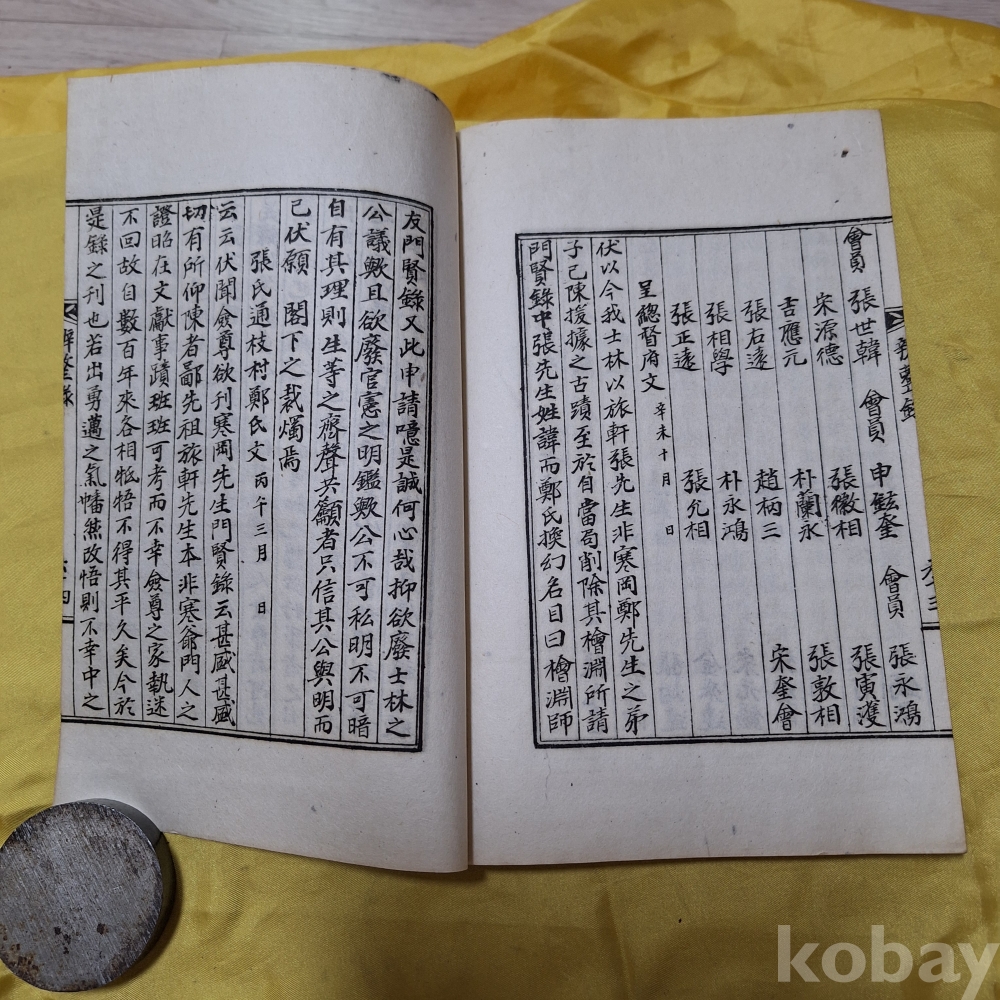 會員 張世韓 會員 申鉉奎 會員 張永鴻
宋源德 張徽相 張寅濩
吉應元 朴蘭永 張敦相
張右遠 趙柄三 宋奎會
張相學 朴永鴻
張正遠 張允相
呈總督府文 辛未十月 日
伏以今我士林以旅軒張先生非寒岡鄭先生之弟
子己陳援據之古蹟至於自當局削除其檜淵所請
門賢錄中張先生姓諱而鄭氏換幻名目曰檜淵師
六十三
友門賢錄又此申請噫是誠何心哉抑欲廢士林之
公議歟且欲廢官憲之明鑑歟公不可私明不可暗
自有其理則生等之齊聲共籲者只信其公與明而
己伏願 閣下之裁燭焉
張氏通枝村鄭氏文 丙午三月 日
云云伏聞僉尊欲刊寒岡先生門賢錄云甚盛甚盛
切有所仰陳者鄙先祖旅軒先生本非寒爺門人之
證昭在文獻事蹟班班可考而不幸僉尊之家執迷
不回故自數百年來各相牴牾不得其平久矣今於
是錄之刊也若出勇邁之氣幡然改悟則不幸中之
辨誣錄
六十四
kobay